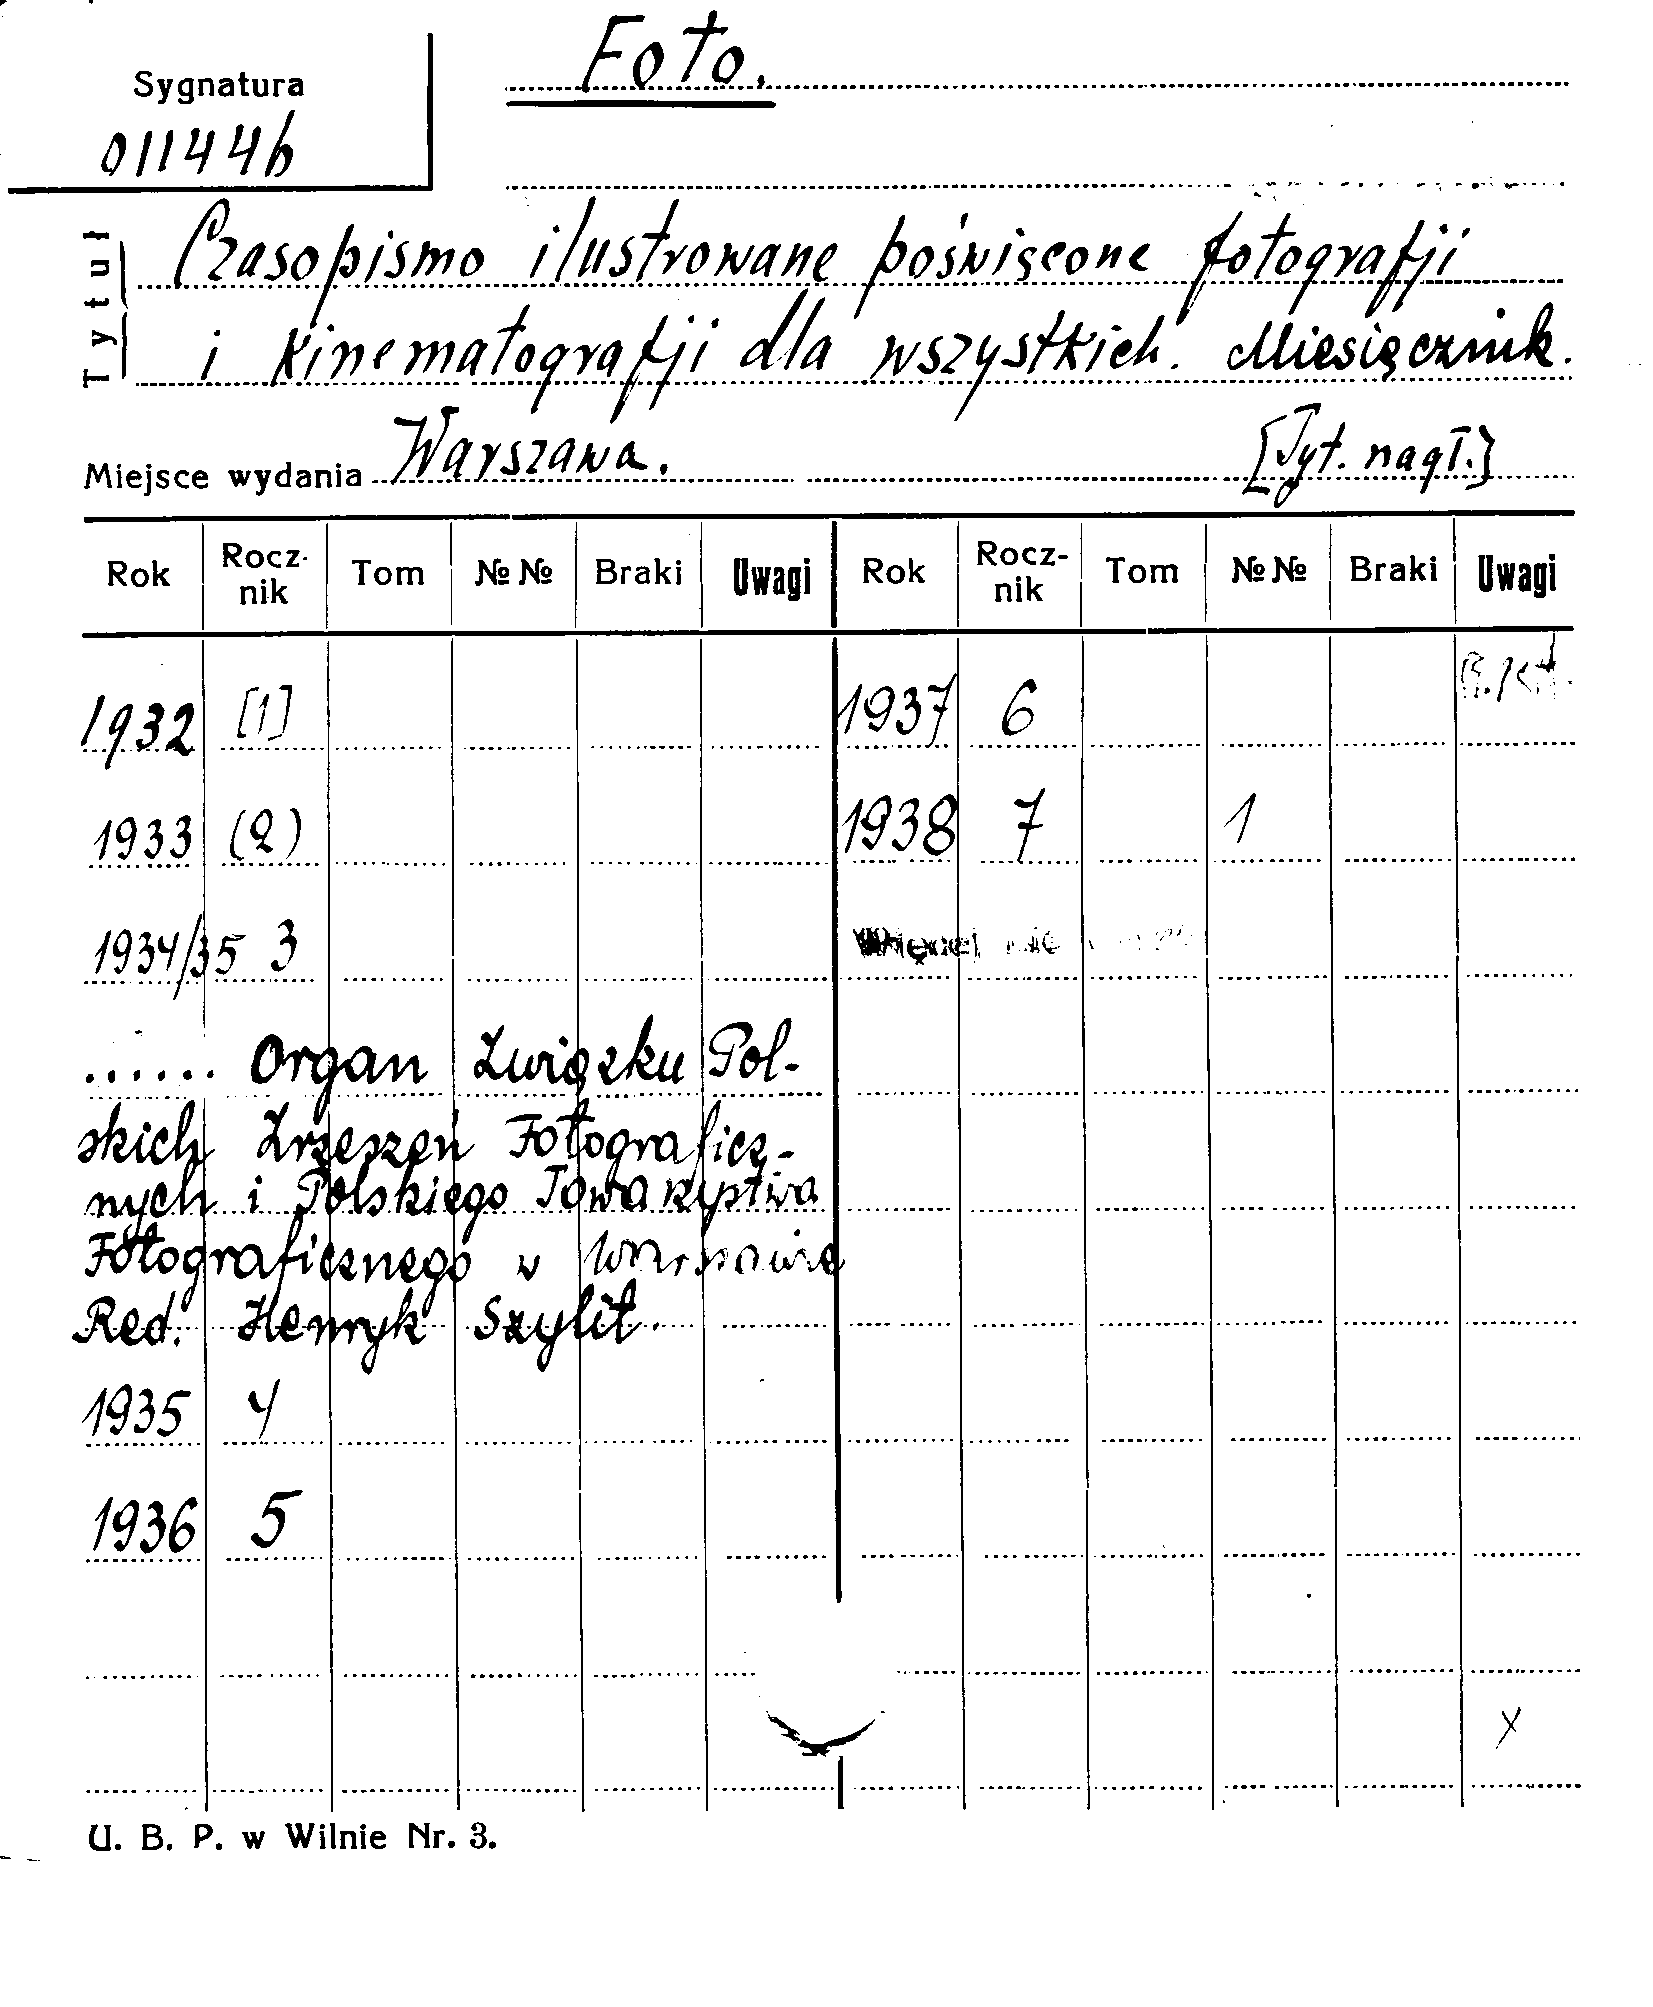 Foto.
Sygnatura
011446
Tytuł
Czasopismo ilustrowane poświęcone fotografji
i kinematografji dla wszystkich. Miesięcznik.
Miejsce wydania Warszawa. [Tyt. nagł.]
Rok Rocz-nik Tom №№ Braki Uwagi Rok Rocz-nik Tom №№ Braki Uwagi
1932 [1] 1937 6
1933 (2) 1938 7 1
1934/35 3 Więcej nie
...... Organ Związku Pol-
skich Zrzeszeń Fotograficz-
nych i Polskiego Towarzystwa
Fotograficznego w Warszawie
Red. Henryk Szylit.
1935 4
1936 5
x
U. B. P. w Wilnie Nr. 3.